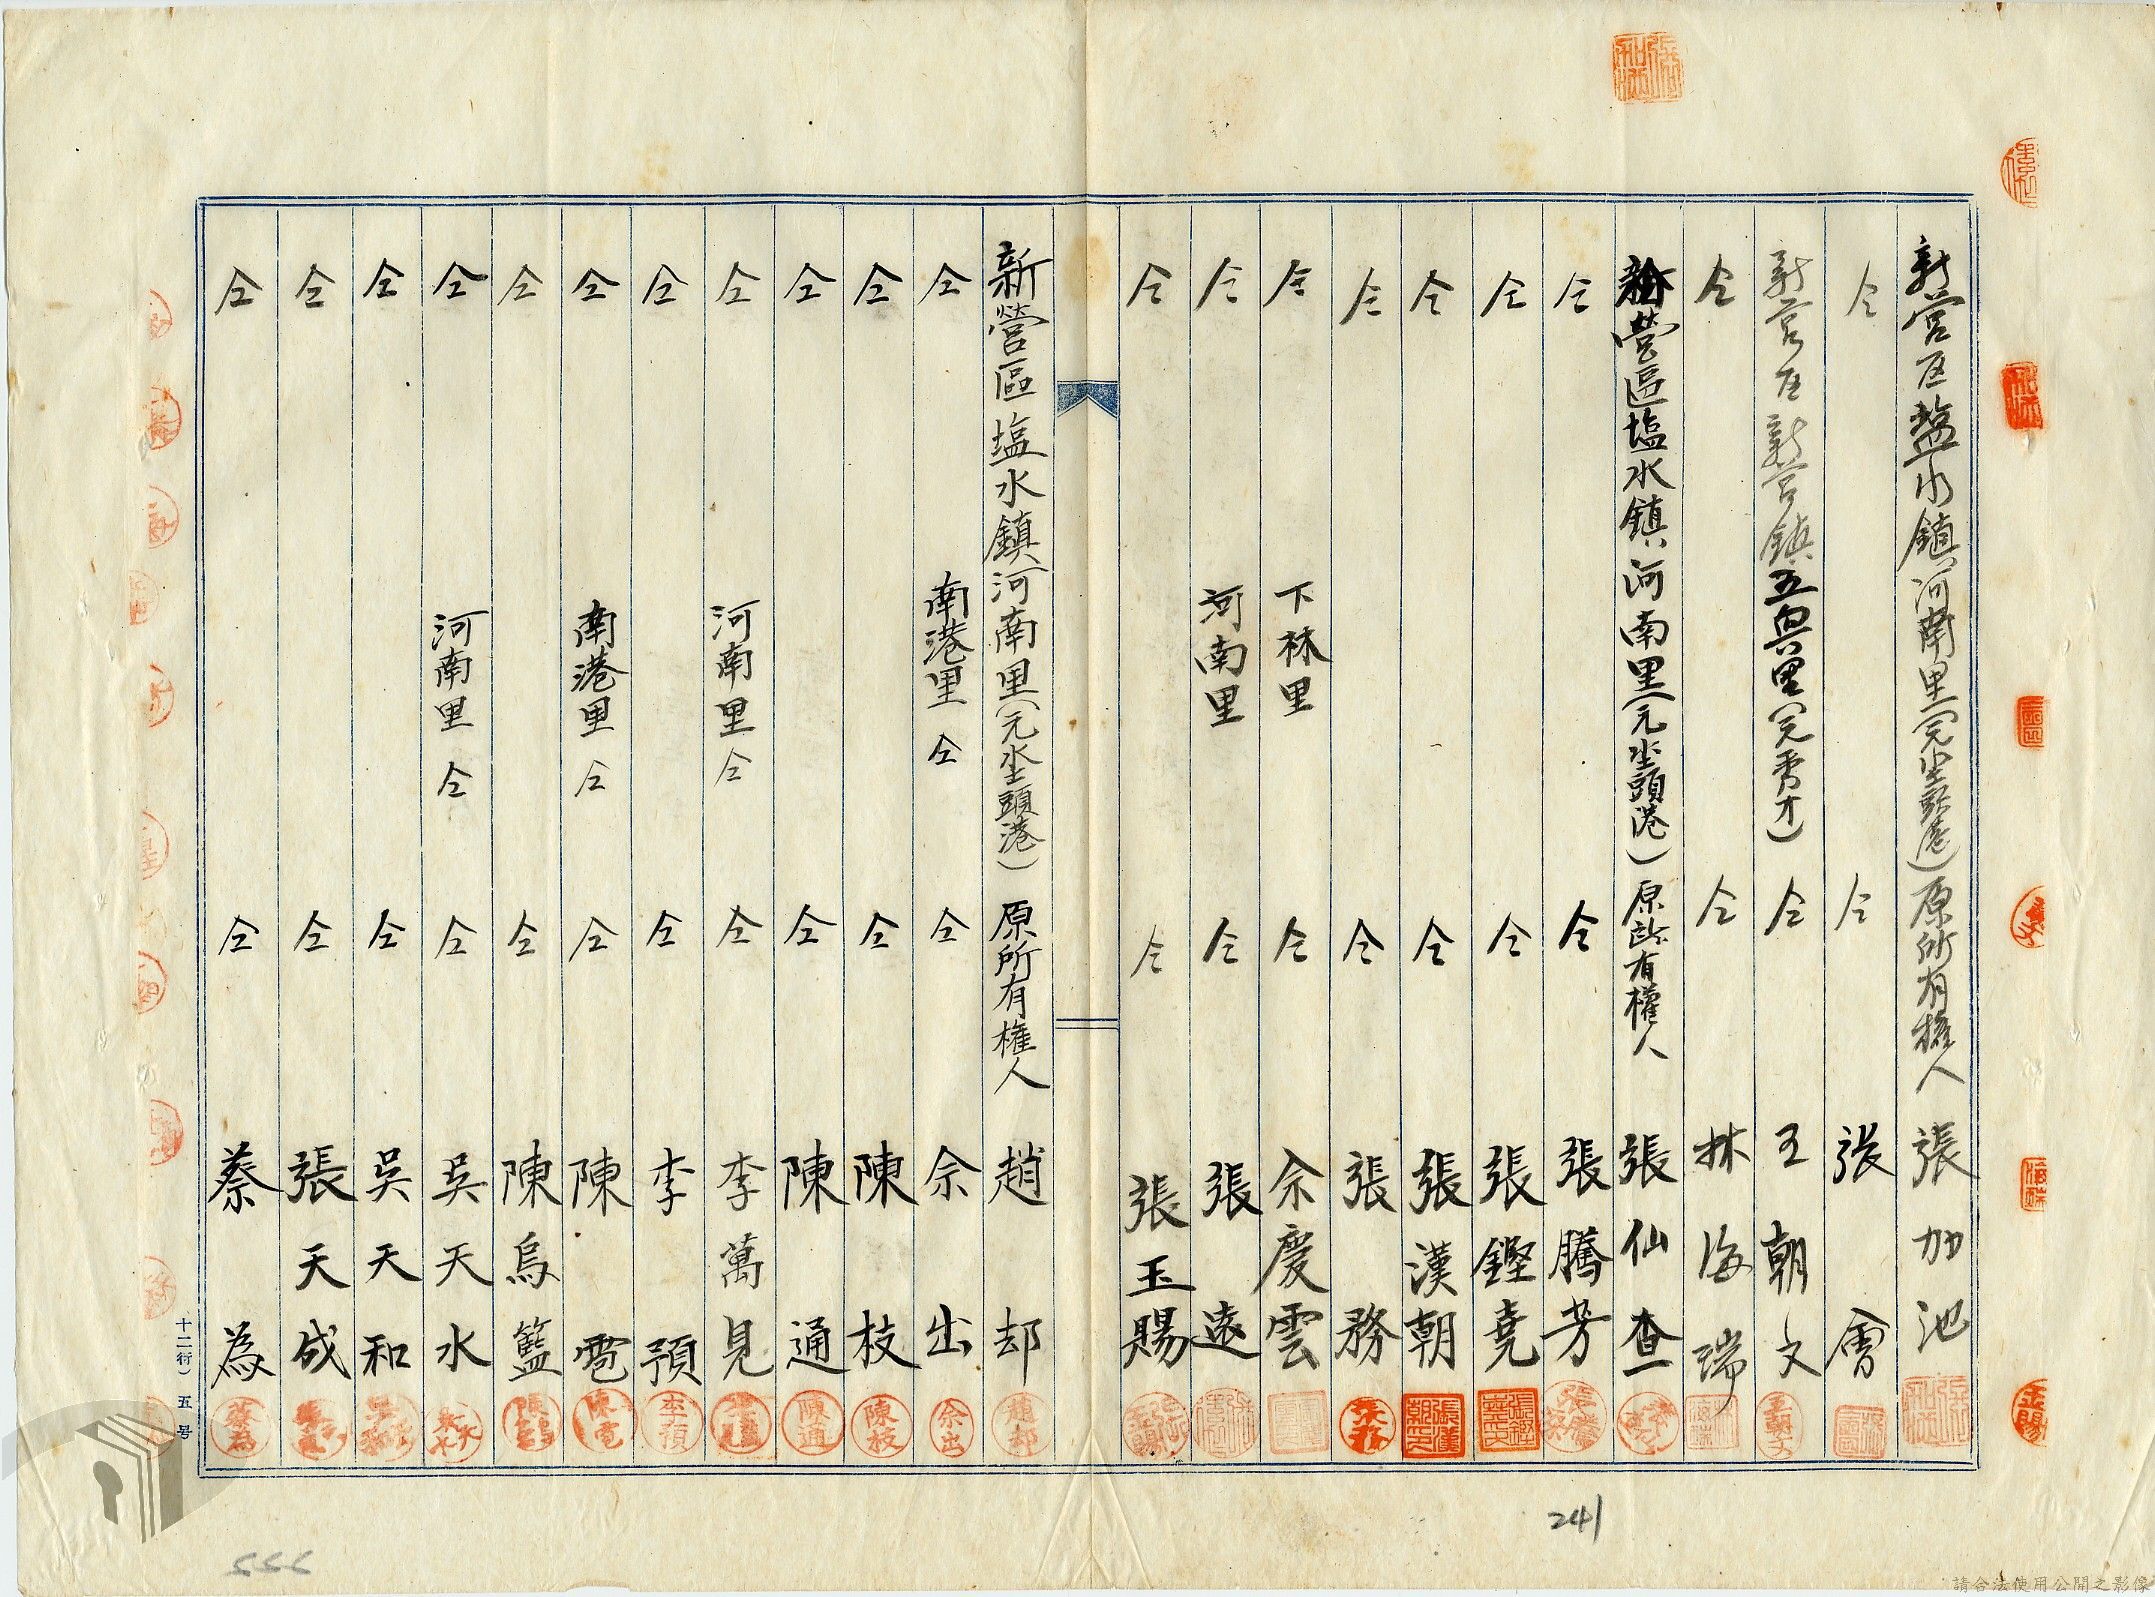 新营区塩水鎮河南里(元坔頭港)原所有權人 張加池
仝 仝 張會
新营区新营鎮五興里(元秀才)仝 王朝文
仝 仝 林海瑞
新營區塩水鎮河南里(元坔頭港)原所有權人 張仙查
仝 仝 張騰芳
仝 仝 張鏗堯
仝 仝 張漢朝
仝 仝 張務
仝 下林里 仝 余慶雲
仝 河南里 仝 張遠
仝 仝 張玉賜
新營區塩水鎮河南里(元坔頭港)原所有權人 趙却
仝 南港里 仝 仝 余出
仝 仝 陳枝
仝 仝 陳通
仝 河南里 仝 仝 李萬見
仝 仝 李預
仝 南港里 仝 仝 陳雹
仝 仝 陳烏籃
仝 河南里 仝 仝 吳天水
仝 仝 吳天和
仝 仝 張天成
仝 仝 蔡為
十二行)五号
241
請合法使用公開之影像